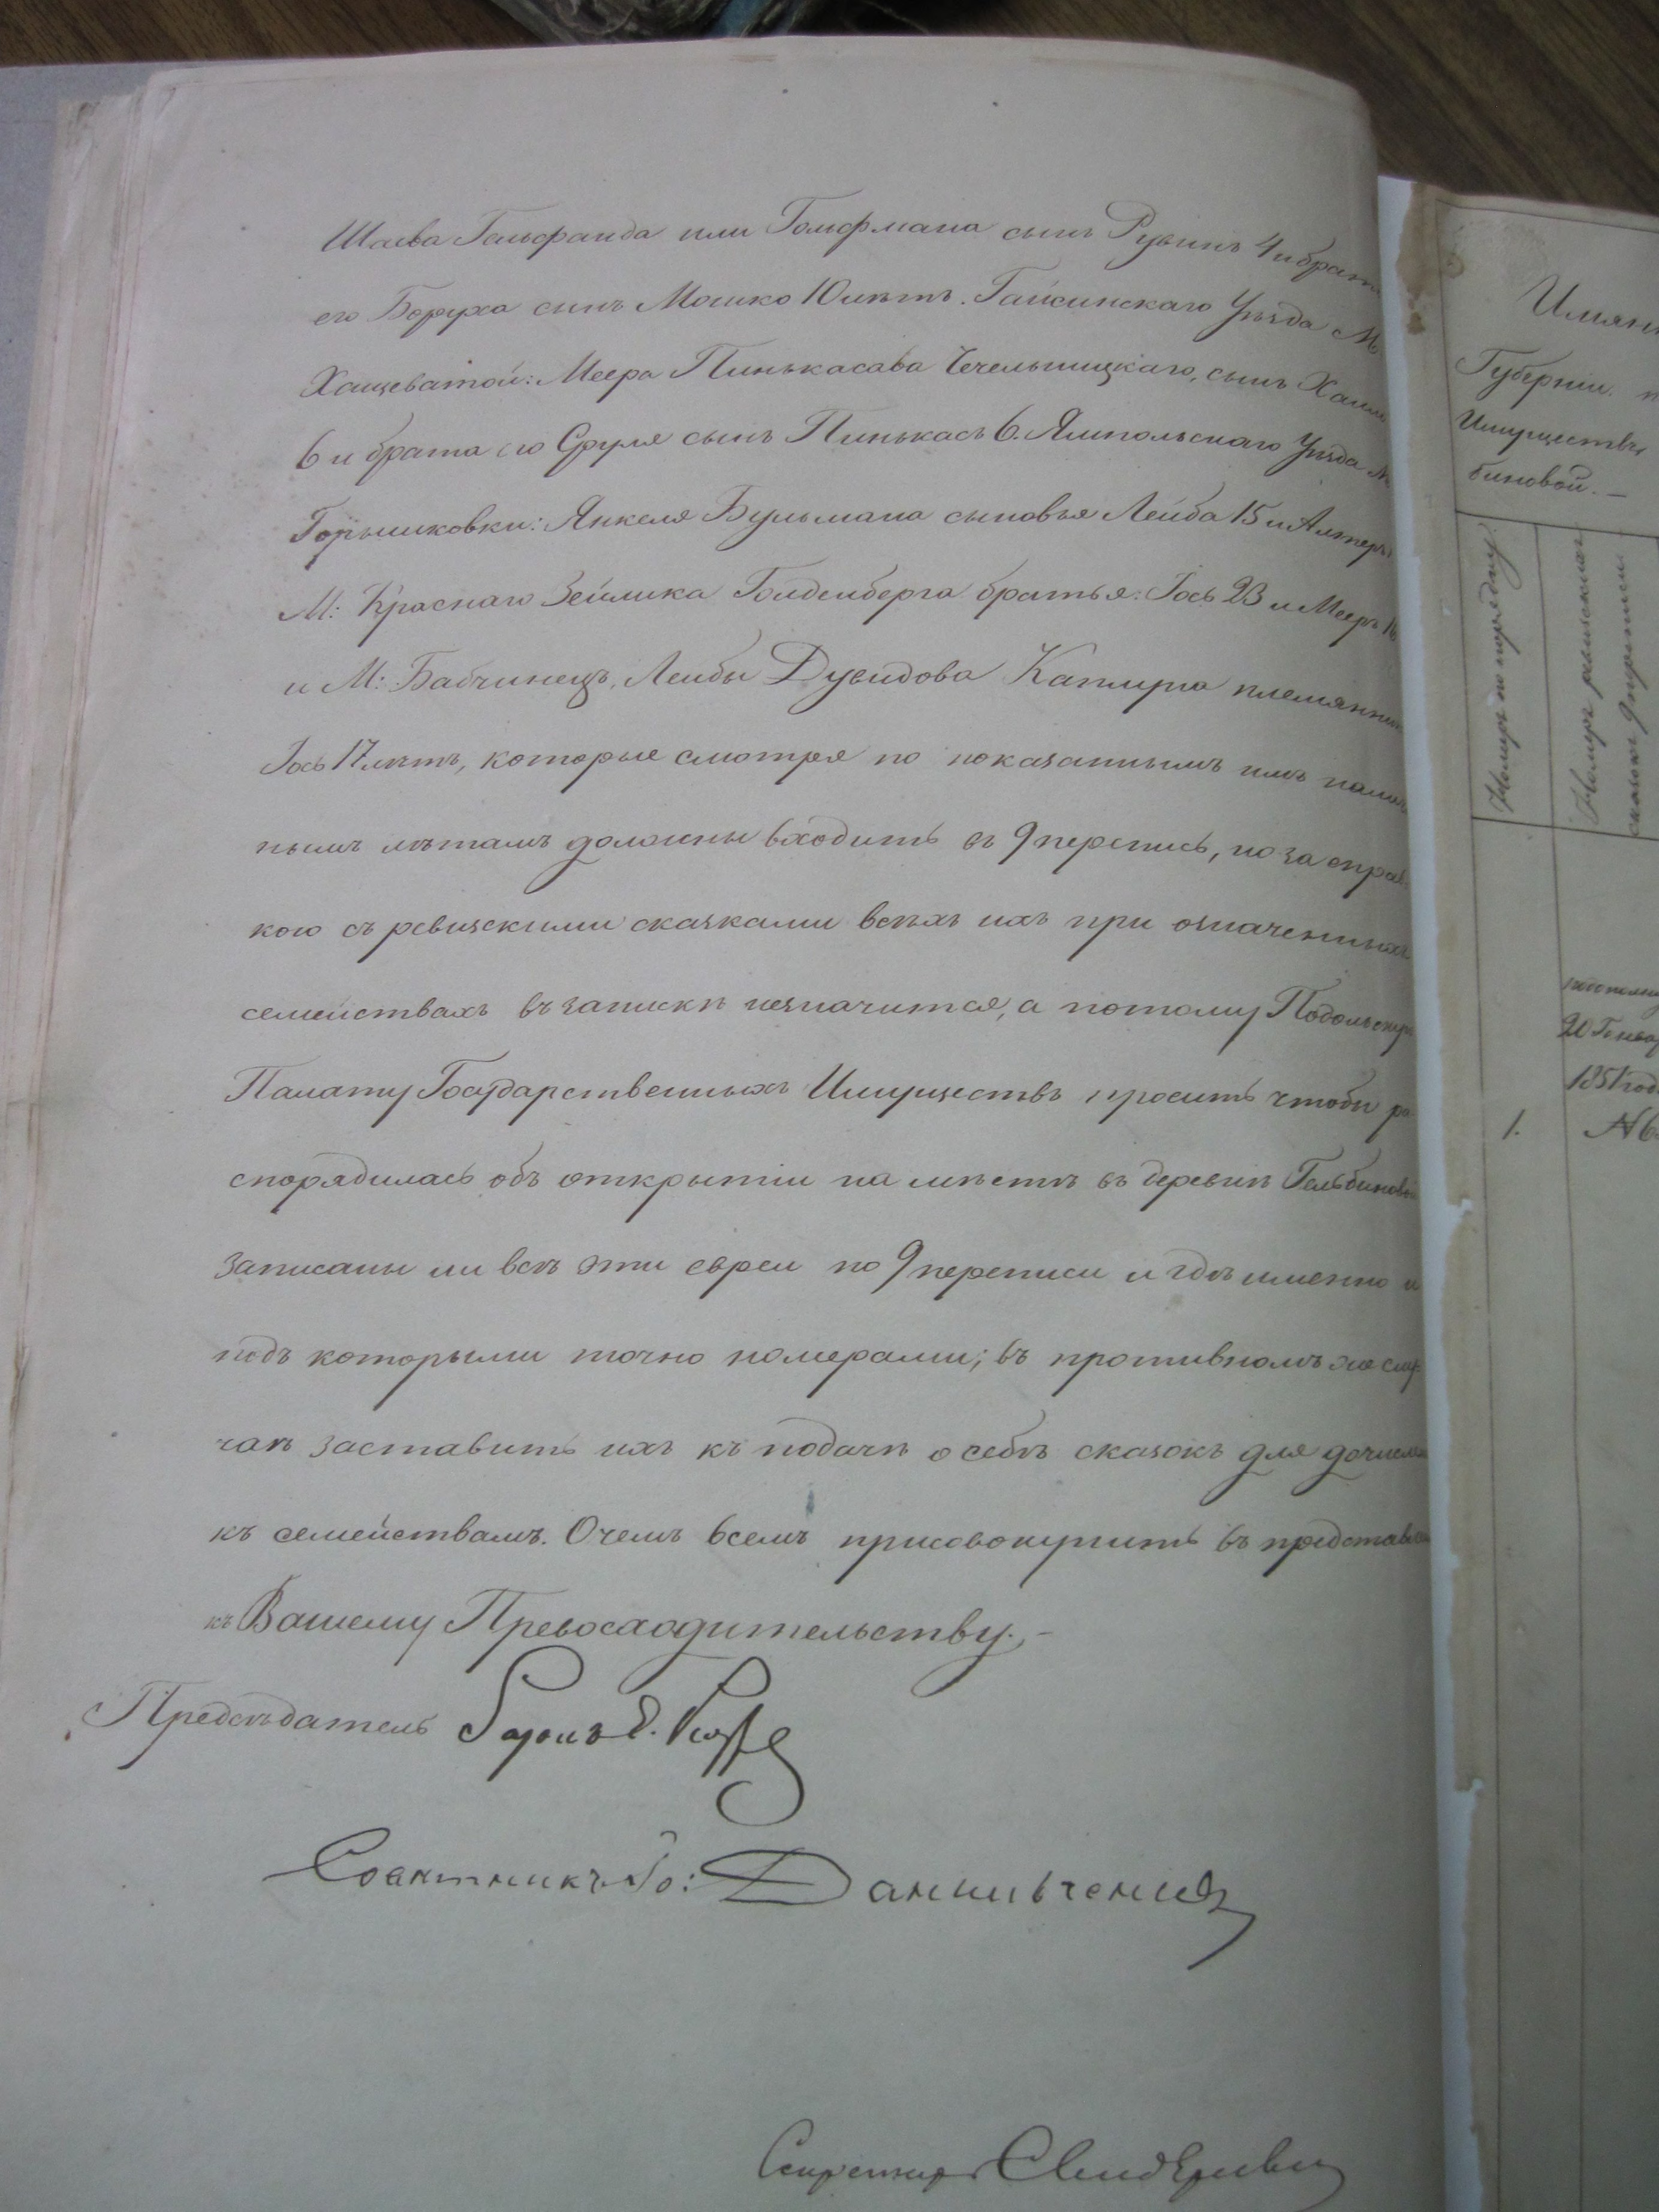 Шаева Гельфанда или Гольфмана сынъ Рувинъ 4 и брата
его Боруха сынъ Мошко 10 лѣтъ. Гайсинскаго Уѣзда М
Хащеватой: Меера Пинькасова Чечельницкаго, сынъ Хаим
6 и брата его Сруля сынъ Пинькасъ 6. Ямпольскаго Уѣзда М
Горышковки: Янкеля Бульмана сыновья Лейба 15 и Алтеръ
М: Краснаго Зейлика Голденберга братья: Іось 23 и Мееръ 16
и М: Бабчинецъ, Лейбы Дувидова племянник
Іось 17 лѣтъ, которые смотря по показаннымъ имъ
нымъ лѣтамъ должны входить въ 9 перепись, но за справ-
кою съ ревизскими сказками всѣхъ ихъ при означенныхъ
семействахъ въ запискѣ незначится, а потому Подольскую
Палату Государственныхъ Имуществъ просить чтобы ра-
спорядилась объ открытіи на мѣстѣ въ деревнѣ Гельбиновой
записаны ли всѣ эти евреи по 9 переписи и гдѣ именно и
подъ которыми точно номерами; въ противномъ же слу-
чаѣ заставить ихъ къ подачѣ о себѣ сказокъ для
къ семействамъ. Очемъ всемъ присовокупить въ представлен
къ Вашему Превосходительству.-
Предсѣдатель
Совѣтникъ
Секретарь
Имян
Губерніи.
Имуществъ
биновой. —
Номеръ по порядку.
Номеръ ревизскихъ
сказокъ 9 переписи
20 Генвар
1851 год
1. № 6